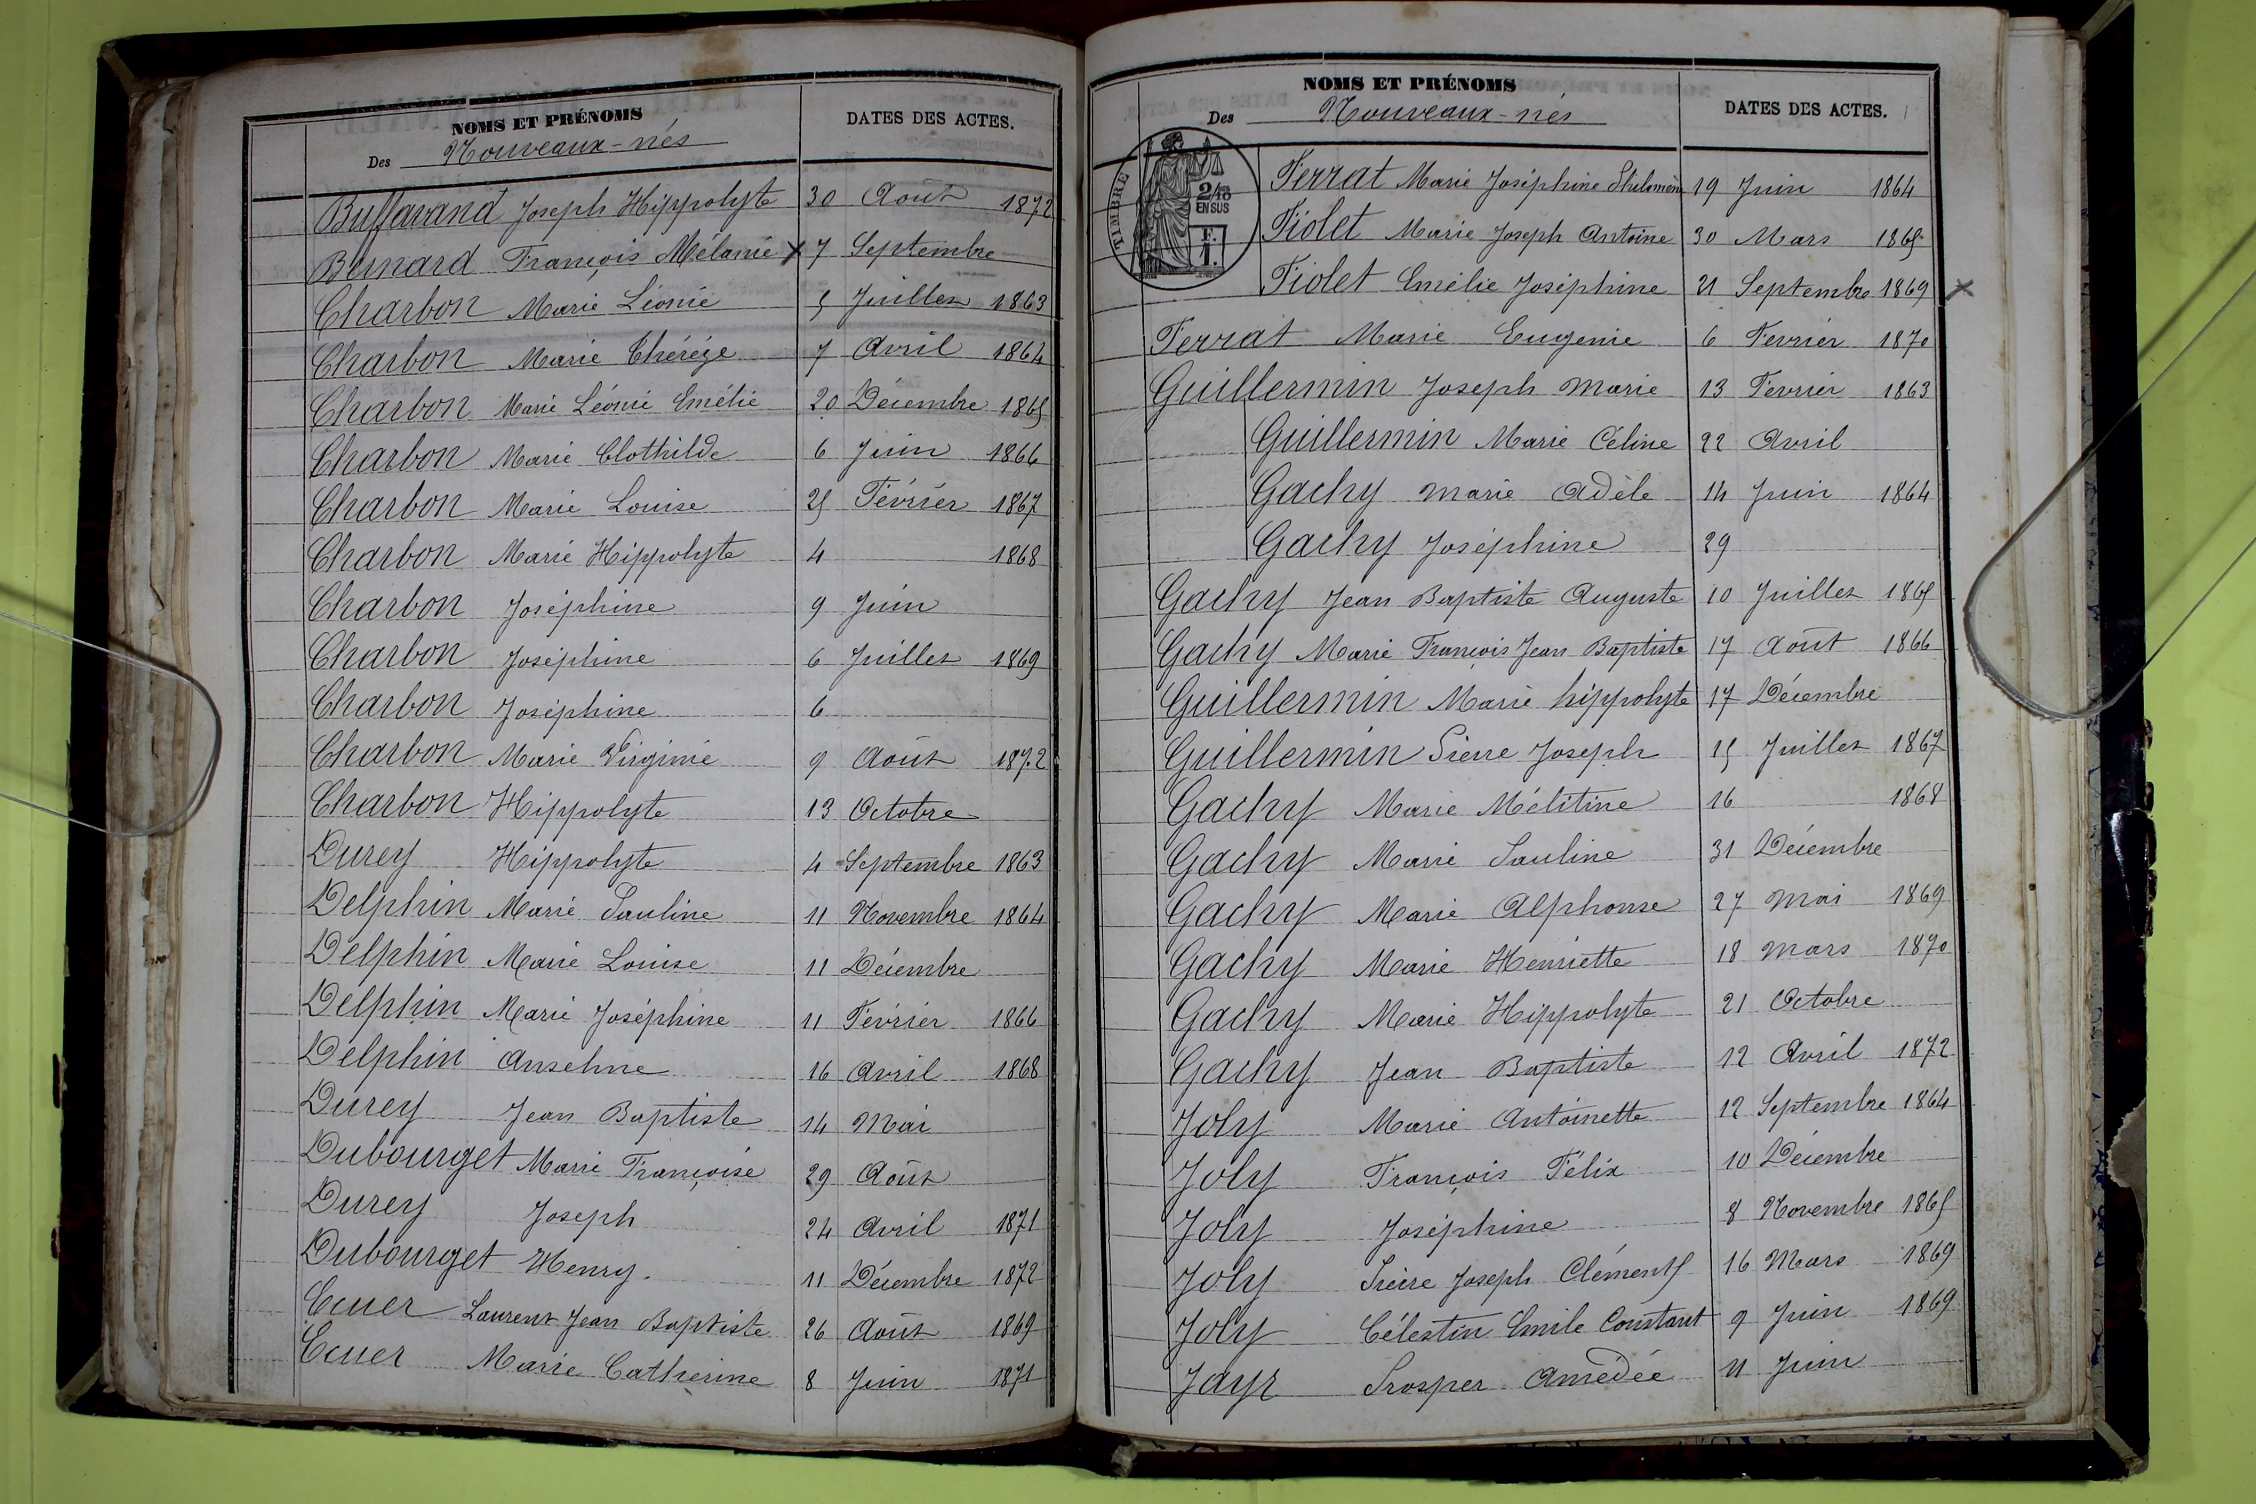 NOMS ET PRÉNOMS
DATES DES ACTES.
Des Nouveaux-nés
Buffavand Joseph Hippolyte 30 Août 1872
Bernard François Mélanie x 7 Septembre
Charbon Marie Léonie 5 Juillet 1863
Charbon Marie Thérèze 7 Avril 1864
Charbon Marie Léonie Emélie 20 Décembre 1865
Charbon Marie Clothilde 6 Juin 1866
Charbon Marie Louise 25 Février 1867
Charbon Marie Hippolyte 4 1868
Charbon Joséphine 9 Juin
Charbon Joséphine 6 Juillet 1869
Charbon Joséphine 6
Charbon Marie Virginie 9 Août 1872
Charbon Hippolyte 13 Octobre
Durey Hippolyte 4 Septembre 1863
Delphin Marie Pauline 11 Novembre 1864
Delphin Marie Louise 11 Décembre
Delphin Marie Joséphine 11 Février 1866
Delphin Anselme 16 Avril 1868
Durey Jean Baptiste 14 Mai
Dubourget Marie Françoise 29 Août
Durey Joseph 24 Avril 1871
Dubourget Henry. 11 Décembre 1872
Ecuer Laurent Jean Baptiste 26 Août 1869
Ecuer Marie Catherine 8 Juin 1871
NOMS ET PRÉNOMS
DATES DES ACTES.
Des Nouveaux-nés
TIMBRE
2/10
EN SUS
F.
1.
Ferrat Marie Joséphine Philomèn 19 Juin 1864
Fiolet Marie Joseph Antoine 30 Mars 1865
Fiolet Emélie Joséphine 21 Septembre 1869 x
Ferrat Marie Eugenie 6 Février 1870
Guillermin Joseph Marie 13 Février 1863
Guillermin Marie Céline 22 Avril
Gachy Marie Adèle 14 Juin 1864
Gachy Joséphine 29
Gachy Jean Baptiste Auguste 10 Juillet 1865
Gachy Marie François Jean Baptiste 17 Août 1866
Guillermin Marie hippolyte 17 Décembre
Guillermin Pierre Joseph 15 Juillet 1867
Gachy Marie Mélitine 16 1868
Gachy Marie Pauline 31 Décembre
Gachy Marie Alphonse 27 Mai 1869
Gachy Marie Henriette 18 Mars 1870
Gachy Marie Hippolyte 21 Octobre
Gachy Jean Baptiste 12 Avril 1872
Joly Marie Antoinette 12 Septembre 1864
Joly François Félix 10 Décembre
Joly Joséphine 8 Novembre 1865
Joly Joseph 16 Mars 1869
Joly Célestin Emile Constant 9 Juin 1869
Jayr Prosper Amédée 11 Juin